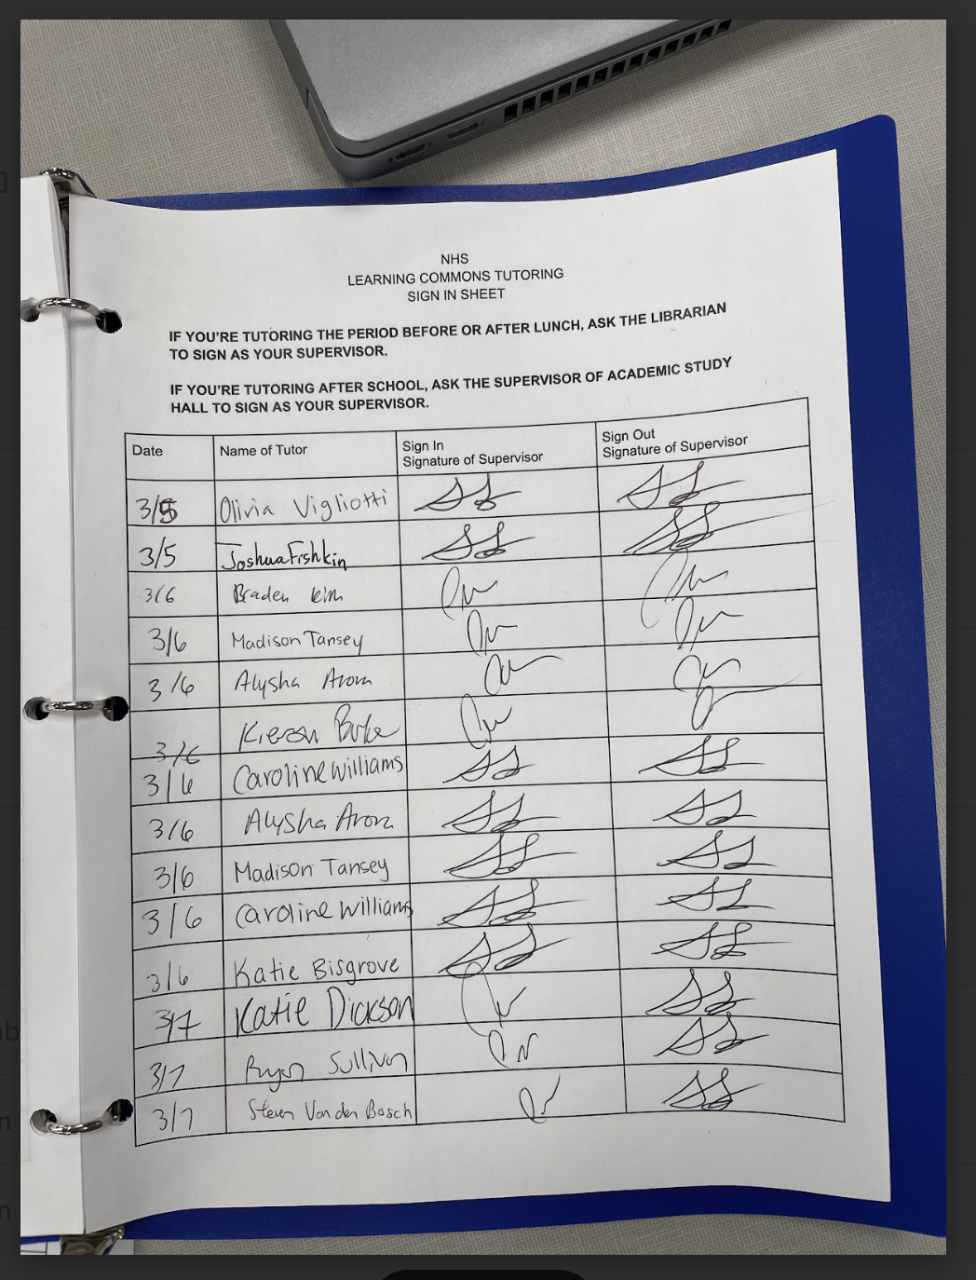 NHS
LEARNING COMMONS TUTORING
SIGN IN SHEET
IF YOU'RE TUTORING THE PERIOD BEFORE OR AFTER LUNCH, ASK THE LIBRARIAN
TO SIGN AS YOUR SUPERVISOR.
IF YOU'RE TUTORING AFTER SCHOOL, ASK THE SUPERVISOR OF ACADEMIC STUDY
HALL TO SIGN AS YOUR SUPERVISOR.
Date Name of Tutor Sign In Signature of Supervisor Sign Out Signature of Supervisor
3/5 Olivia Vigliotti SS SS
3/5 Joshua Fishkin SS SS
3/6 Braden Kim
3/6 Madison Tansey
3/6 Alysha Arora
3/6 Kieran
3/6 Caroline Williams SS SS
3/6 Alysha Arora SS SS
3/6 Madison Tansey SS SS
3/6 Caroline Williams SS SS
3/6 Katie Bisgrove SS SS
3/7 Katie Dickson SS
3/7 Ryan Sullivan SS
3/7 Steven Van den Bosch SS